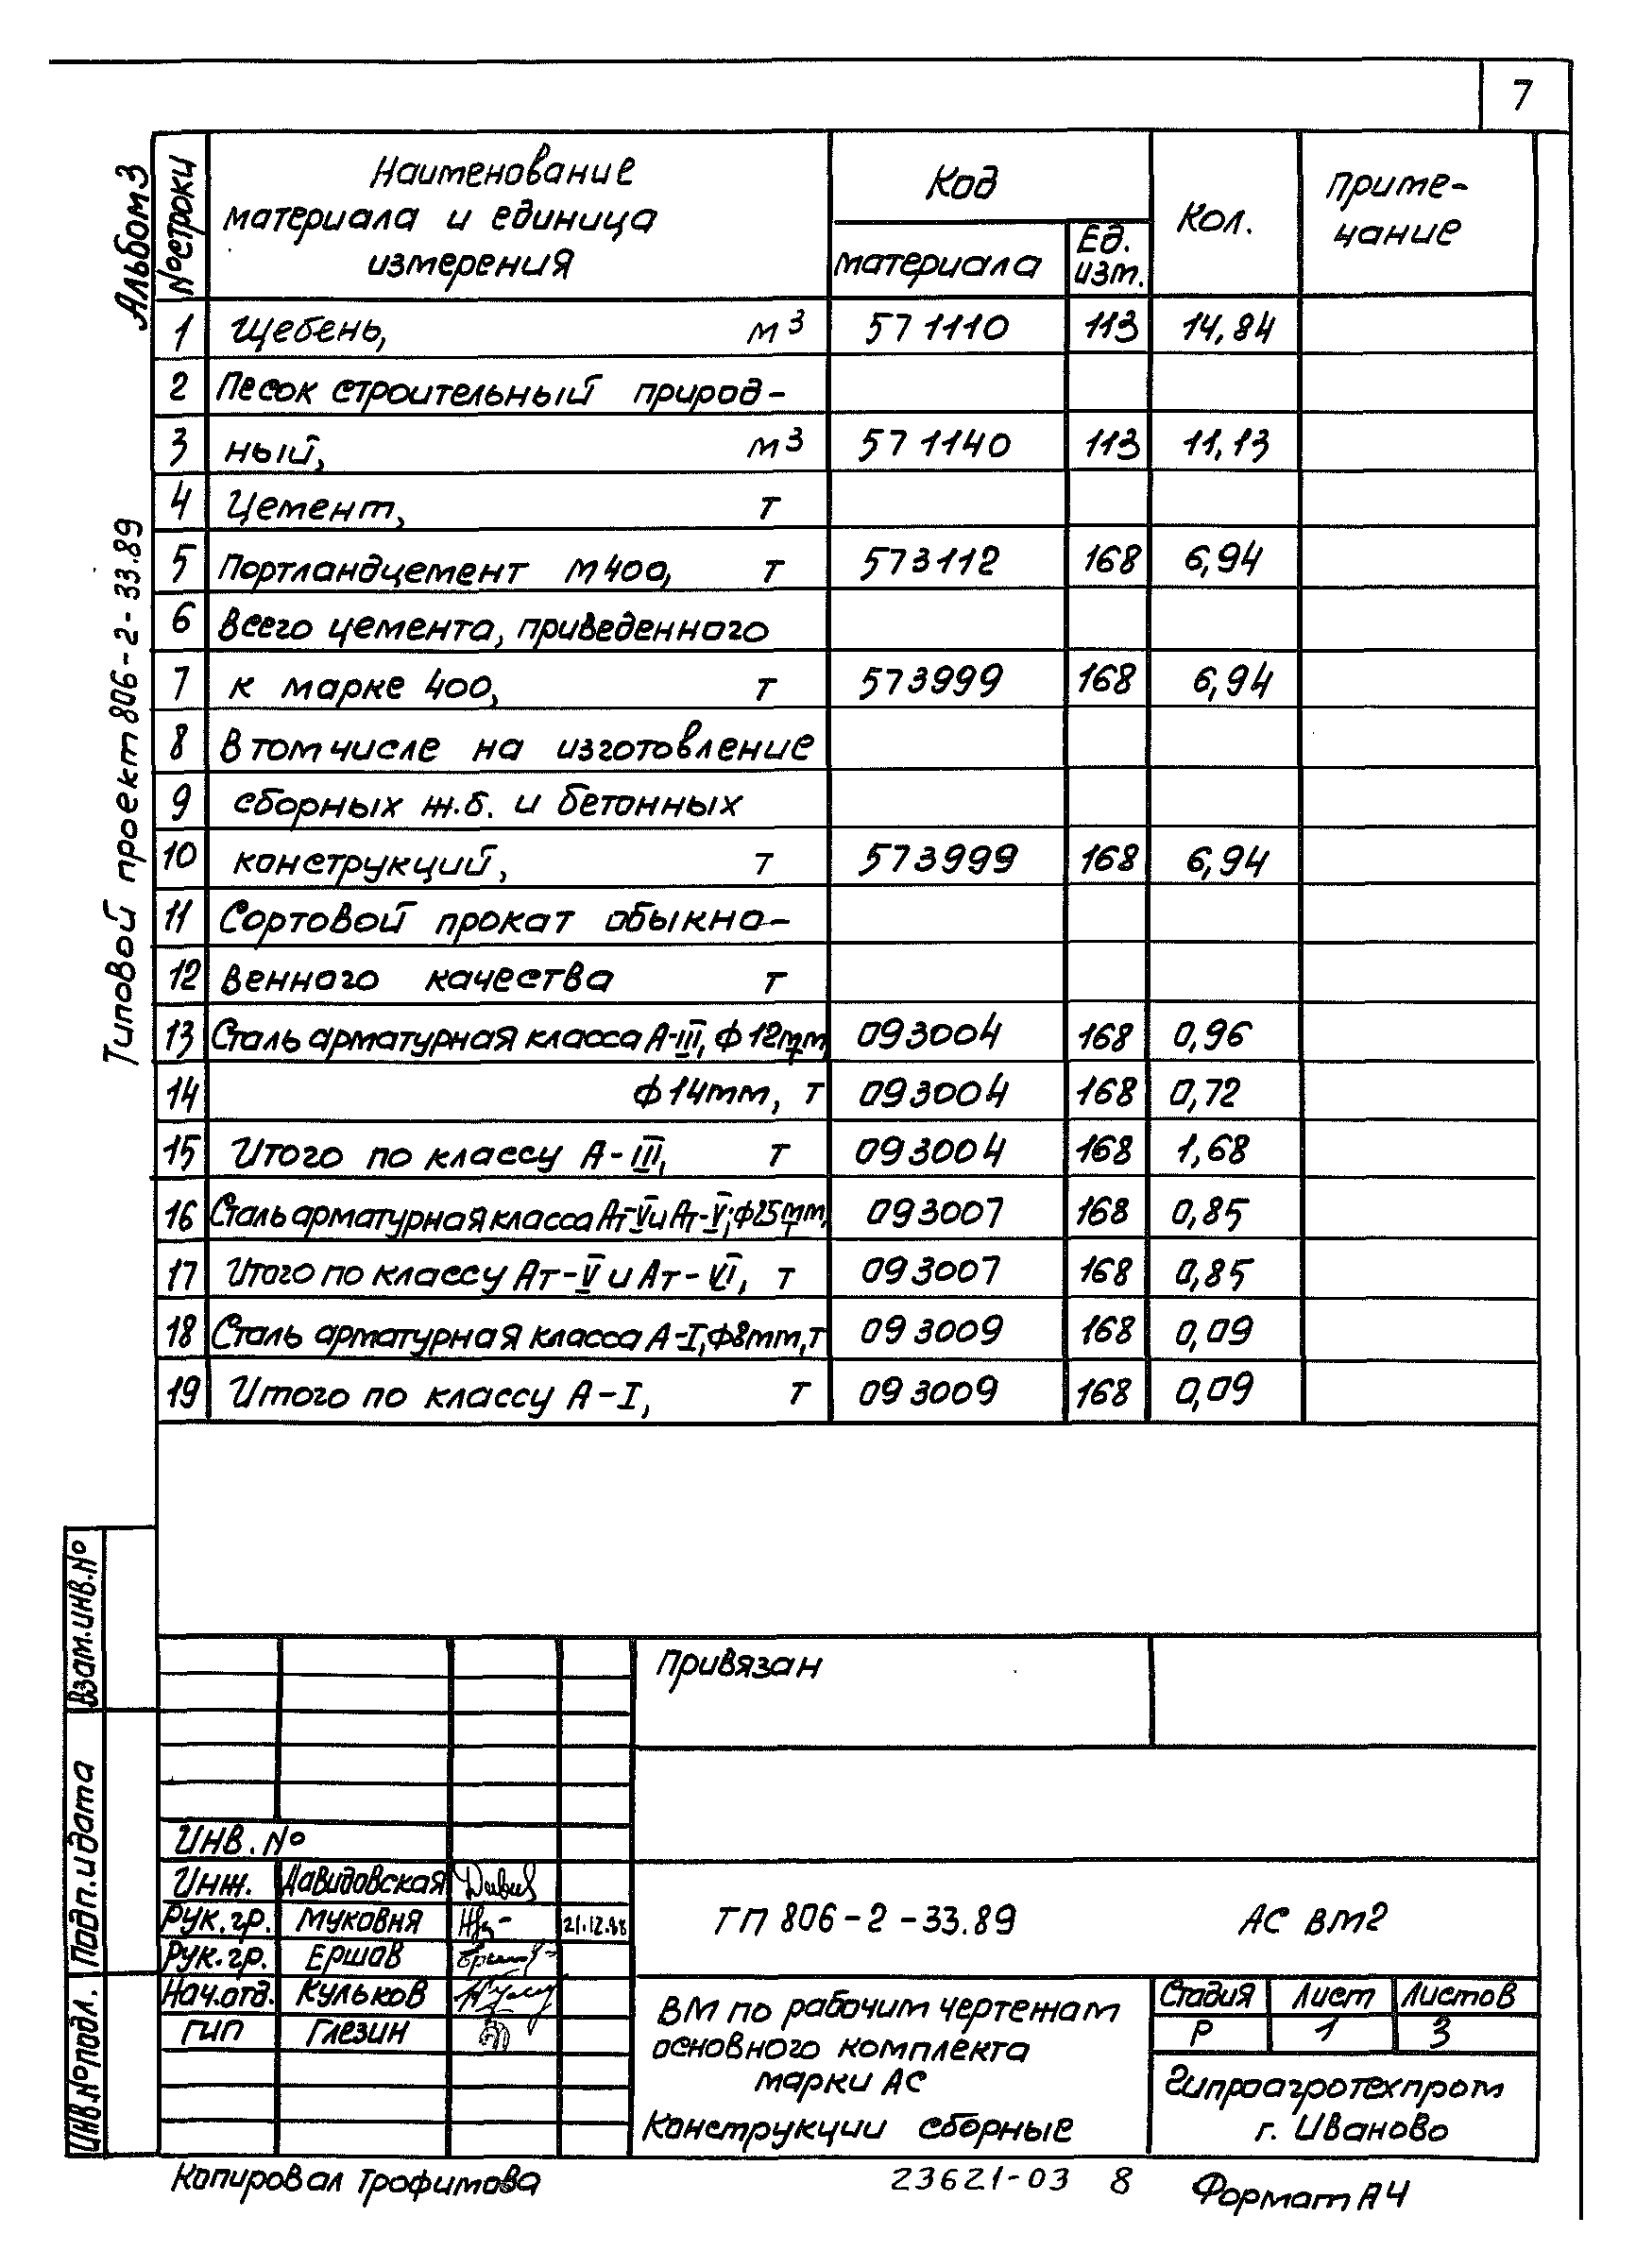 7
Альбом 3
Типовой проект 806-2-33.89
№ строки
Наименование
материала и единица
измерения
Код
материала
Ед.
изм.
Кол.
Приме-
чание
1 Щебень, м³ 571110 113 14,84
2 Песок строительный природ-
3 ный, м³ 571140 113 11,13
4 Цемент, т
5 Портландцемент М400, т 573112 168 6,94
6 Всего цемента, приведенного
7 к марке 400, т 573999 168 6,94
8 В том числе на изготовление
9 сборных ж.б. и бетонных
10 конструкций, т 573999 168 6,94
11 Сортовой прокат обыкно-
12 венного качества т
13 Сталь арматурная класса А-III, ф 12мм, т 093004 168 0,96
14 ф 14мм, т 093004 168 0,72
15 Итого по классу А-III, т 093004 168 1,68
16 Сталь арматурная класса Ат-V и Ат-V; ф25мм, т 093007 168 0,85
17 Итого по классу Ат-V и Ат-VI, т 093007 168 0,85
18 Сталь арматурная класса А-I, ф8мм, т 093009 168 0,09
19 Итого по классу А-I, т 093009 168 0,09
Взам. инв. №
Подп. и дата
Инв. № подл.
Привязан
Инв. №
Инж. Давидовская
Рук. гр. Муковня 21.12.88
Рук. гр. Ершов
Нач. отд. Кульков
ГИП Глезин
ТП 806-2-33.89 АС ВМ2
ВМ по рабочим чертежам
основного комплекта
марки АС
Конструкции сборные
Стадия Лист Листов
Р 1 3
Гипроагротехпром
г. Иваново
Копировал Трофимова
23621-03 8
Формат А4